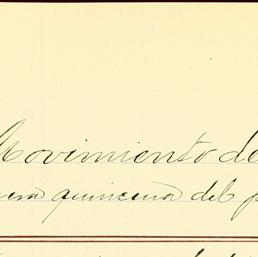 Movimiento de
quincena del